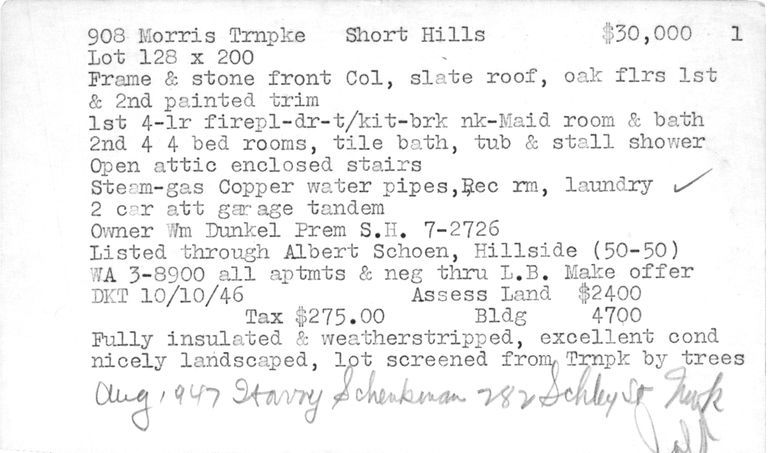 908 Morris Trnpke   Short Hills   $30,000   1
Lot 128 x 200
Frame & stone front Col, slate roof, oak flrs 1st
& 2nd painted trim
1st 4-lr firepl-dr-t/kit-brk nk-Maid room & bath
2nd 4 4 bed rooms, tile bath, tub & stall shower
Open attic enclosed stairs
Steam-gas Copper water pipes,Rec rm, laundry ✓
2 car att garage tandem
Owner Wm Dunkel Prem S.H. 7-2726
Listed through Albert Schoen, Hillside (50-50)
WA 3-8900 all aptmts & neg thru L.B. Make offer
DKT 10/10/46   Assess Land   $2400
Tax $275.00   Bldg   4700
Fully insulated & weatherstripped, excellent cond
nicely landscaped, lot screened from Trnpk by trees
Aug, 1947 Harry Schenkman 282 Schley St Nwk
Sold